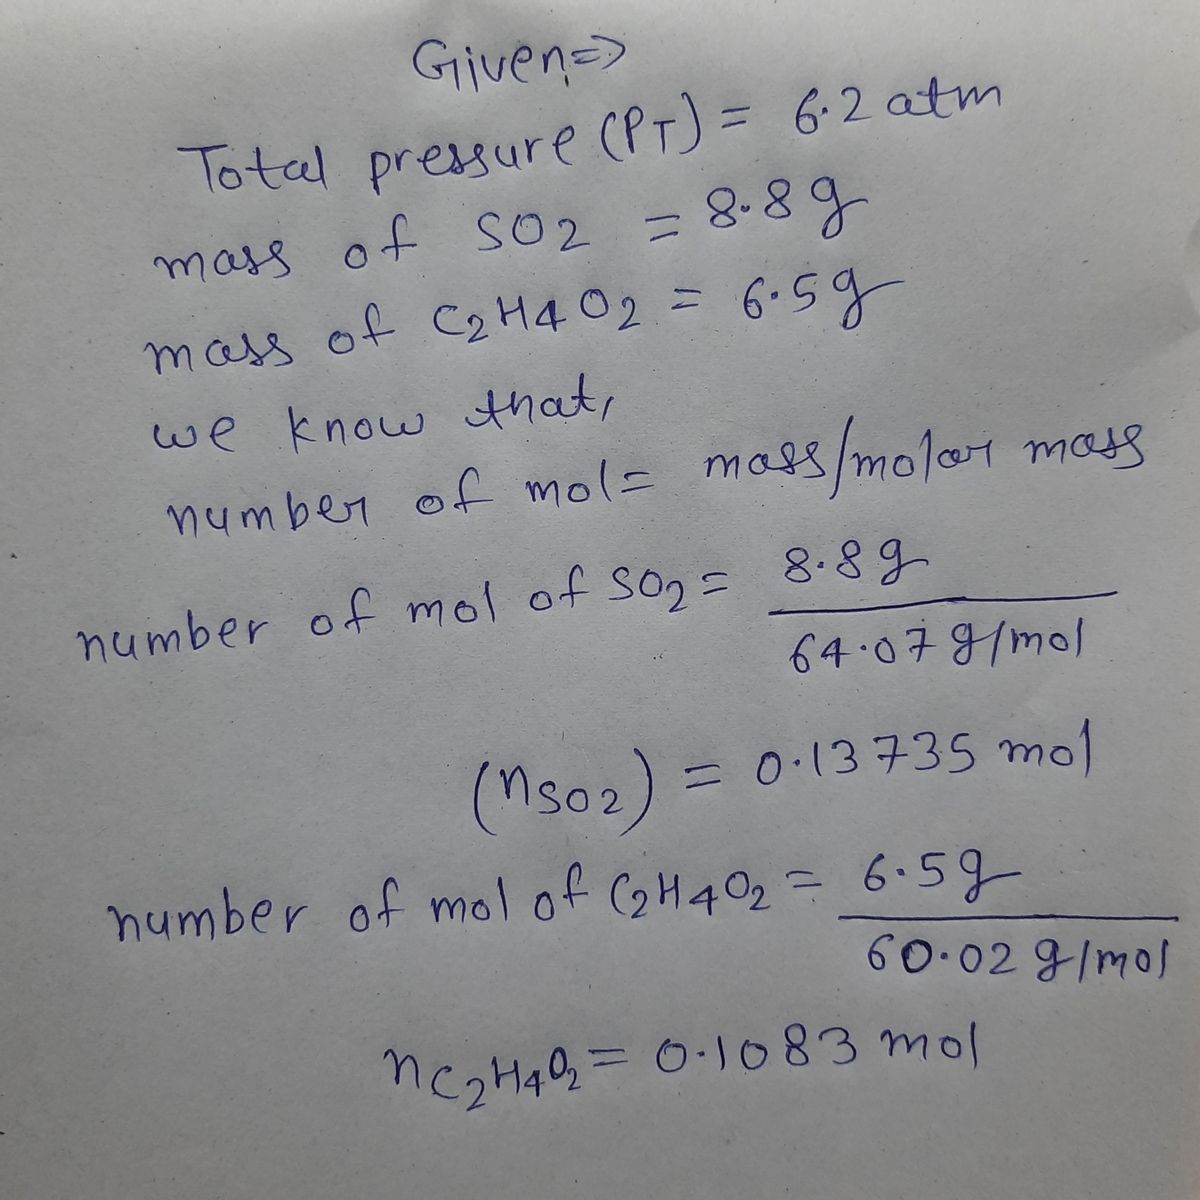 Given=>
Total pressure (PT) = 6.2 atm
mass of SO2 = 8.8g
mass of C2H4O2 = 6.5g
we know that,
number of mol= mass/molar mass
number of mol of SO2= 8.8g
64.07 g/mol
(nSO2) = 0.13735 mol
number of mol of C2H4O2 = 6.5g
60.02 g/mol
nC2H4O2 = 0.1083 mol